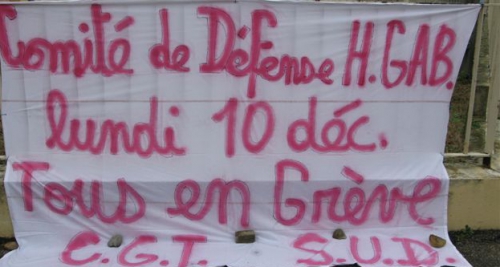 Comité de Défense H.GAB.
lundi 10 déc.
Tous en Grève
C.G.T. S.U.D.